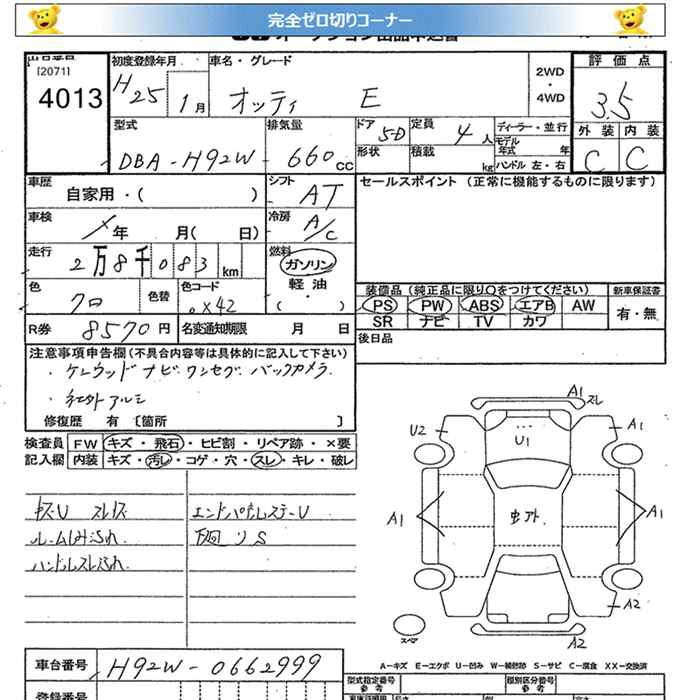 完全ゼロ切りコーナー
[2071]
4013
初度登録年月
H25 1月
車名・グレード
オッティ E
2WD
・
4WD
評価点
3.5
外装 内装
C C
型式
DBA-H92W
排気量
660cc
ドア 5D
定員 4人
形状
積載 kg
ディーラー・並行
モデル年式 年
ハンドル 左・右
車歴
自家用・( )
シフト
AT
セールスポイント (正常に機能するものに限ります)
車検
年 月( 日)
冷房
A/C
走行
2万8千083km
燃料
ガソリン
軽油
・
( )
色
クロ
色替
色コード
0X42
装備品(純正品に限り○をつけてください)
PS PW ABS エアB AW
SR ナビ TV カワ
新車保証書
有・無
R券 8570円
名変通知期限 月 日
後日品
注意事項申告欄(不具合内容等は具体的に記入して下さい)
・ケンウッドナビワンセグ バックカメラ
・社外アルミ
修復歴 有 〔箇所 〕
検査員 FW キズ・飛石・ヒビ割・リペア跡・×要
記入欄 内装 キズ・汚レ・コゲ・穴・スレ・キレ・破レ
ルームしみ汚れ
ハンドルスレ汚れ
エンドパネルステーU
下回りS
A1 スレ
U2
A1
U1
A1
A1
A2
A2
スペア
A-キズ E-エクボ U-凹み W-補修跡 S-サビ C-腐食 XX-交換済
車台番号 H92W-0662999
型式指定番号
参考
種別区分番号
参考